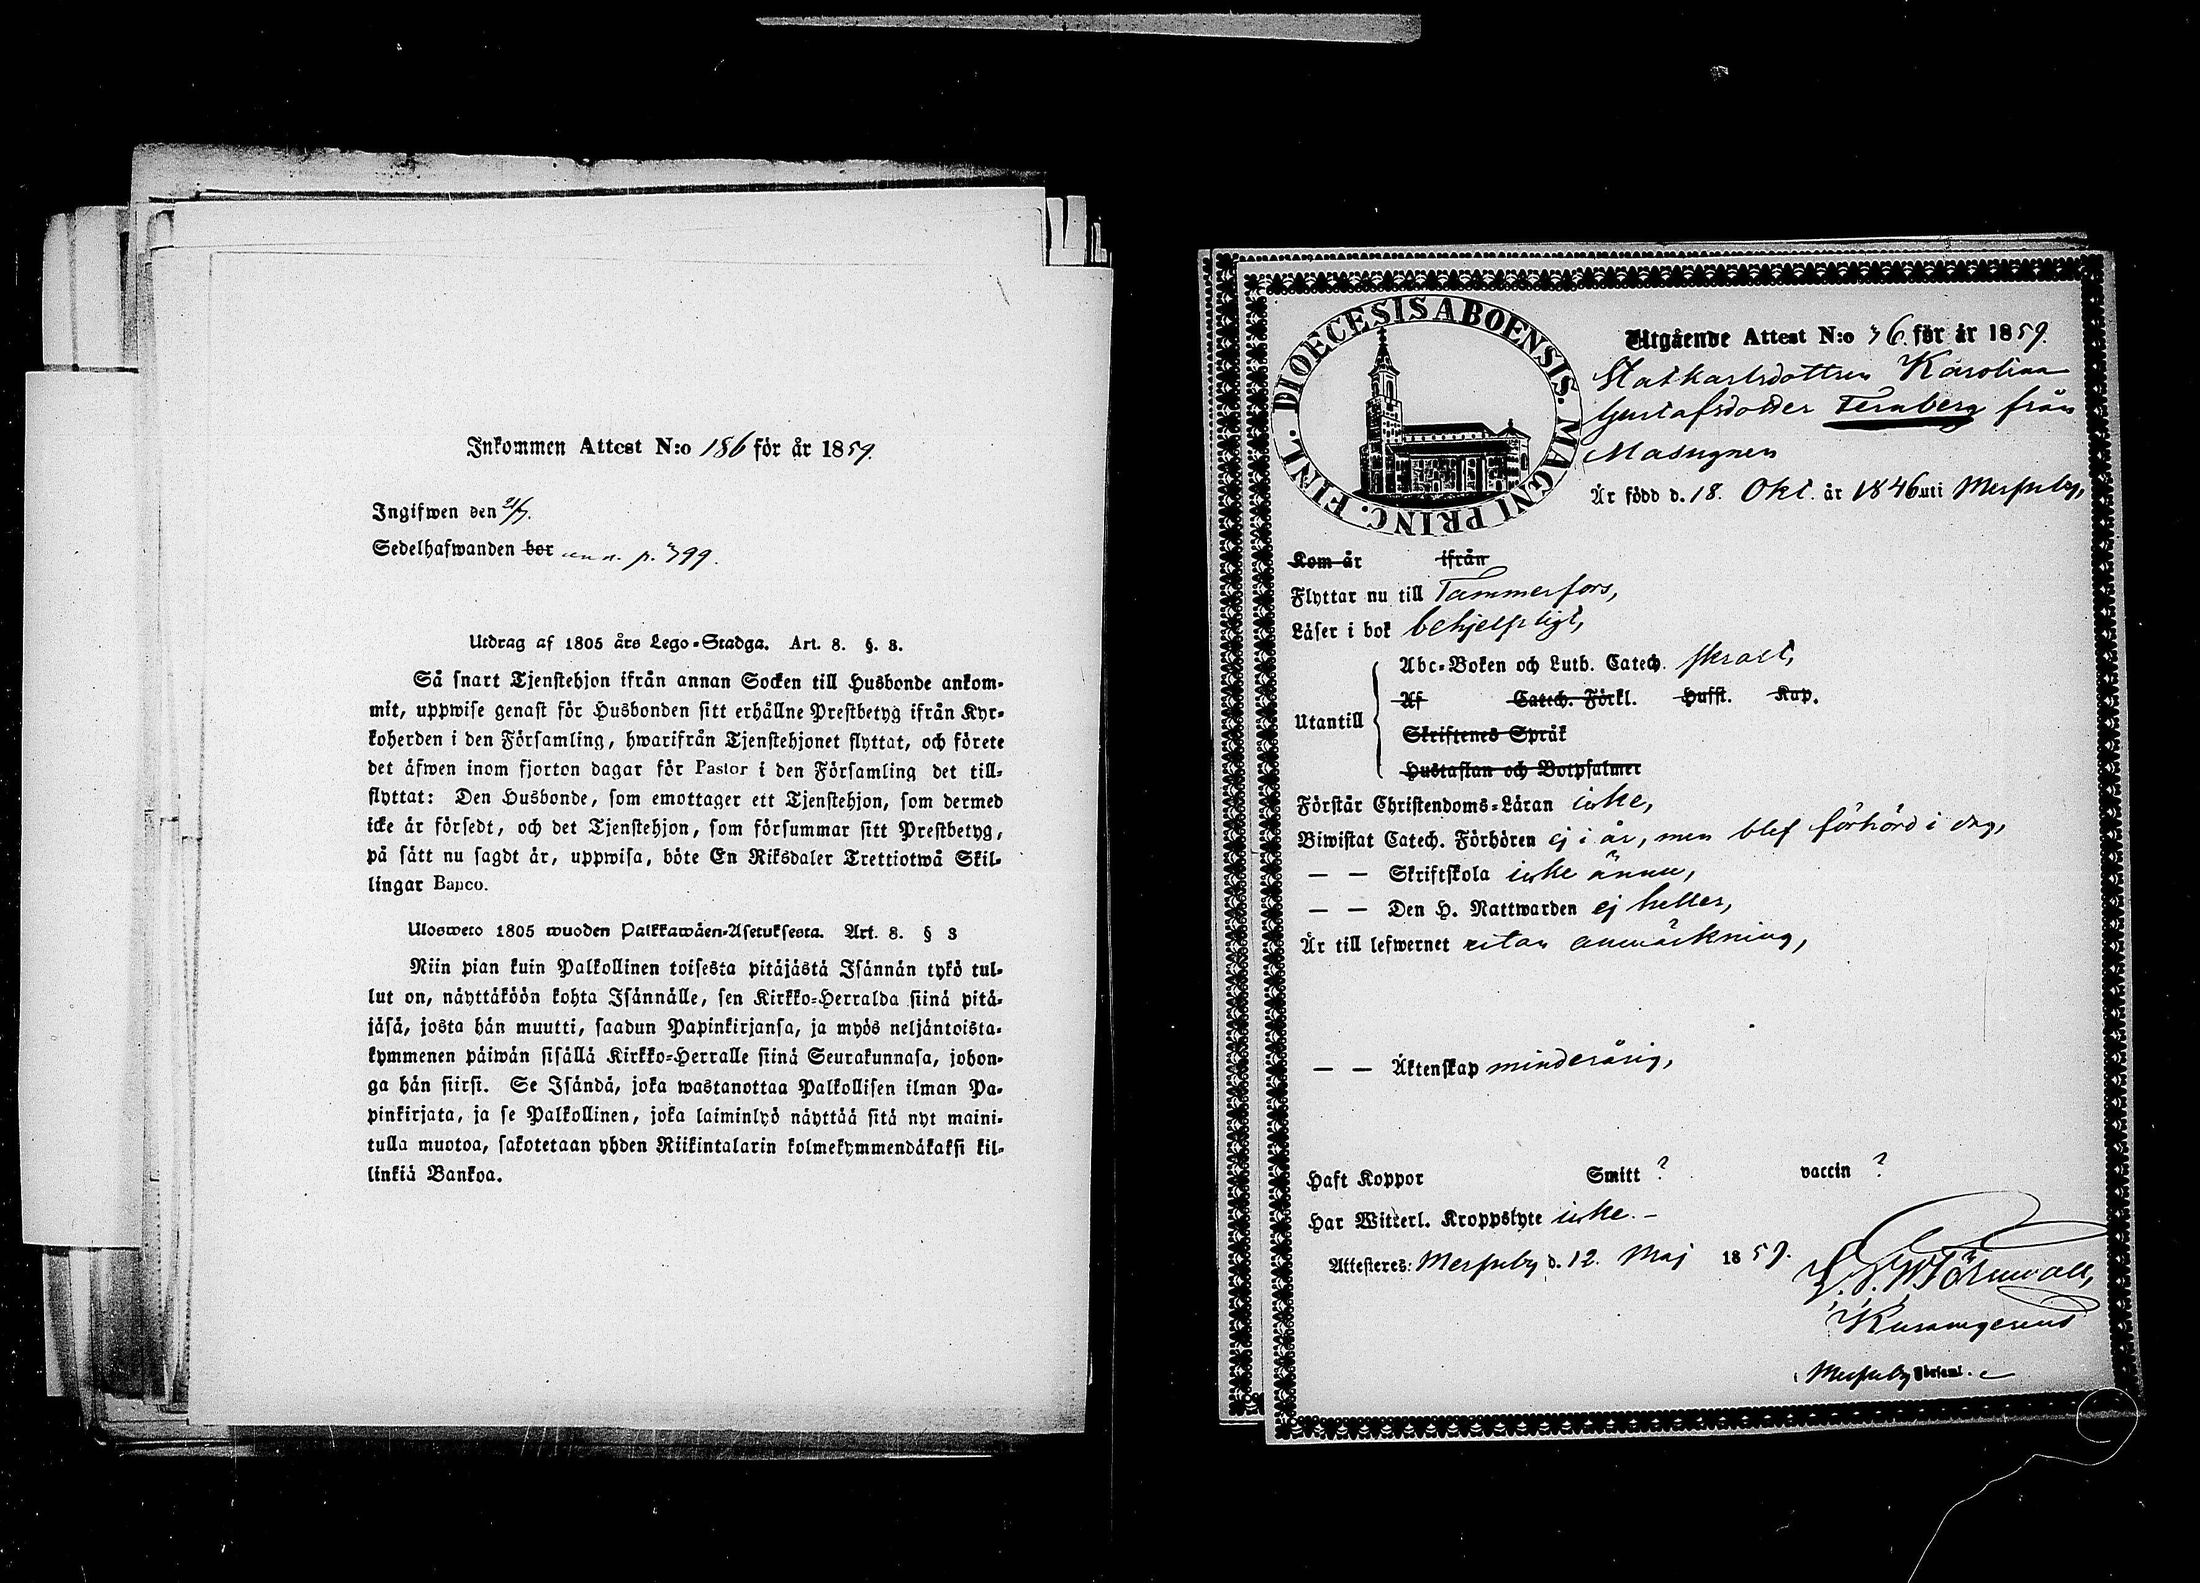 Inkommen Attest N:o 186 för år 1859.
Ingifwen den 21/7.
Sedelhafwanden bor p. 399.
Utdrag af 1805 års Lego-Stadga. Art. 8. §. 8.
Så snart Tjenstehjon ifrån annan Socken till Husbonde ankom-
mit, uppwise genast för Husbonden sitt erhållne Prestbetyg ifrån Kyr-
koherden i den Församling, hwarifrån Tjenstehjonet flyttat, och förete
det äfwen inom fjorton dagar för Pastor i den Församling det till-
flyttat: Den Husbonde, som emottager ett Tjenstehjon, som dermed
icke är försedt, och det Tjenstehjon, som försummar sitt Prestbetyg,
på sätt nu sagdt är, uppwisa, böte En Riksdaler Trettiotwå Skil-
lingar Banco.
Ulosweto 1805 wuoden Palkkawäen-Asetuksesta. Art. 8. § 8
Niin pian kuin Palkollinen toisesta pitäjästä Isännän tykö tul-
lut on, näyttäköön kohta Isännälle, sen Kirkko-Herralda siinä pitä-
jäsä, josta hän muutti, saadun Papinkirjansa, ja myös neljäntoista-
kymmenen päiwän sisällä Kirkko-Herralle siinä Seurakunnasa, johon-
ga hän siirsi. Se Isändä, joka wastanottaa Palkollisen ilman Pa-
pinkirjata, ja se Palkollinen, joka laiminlyö näyttää sitä nyt maini-
tulla muotoa, sakotetaan yhden Riikintalarin kolmekymmendäkaksi kil-
linkiä Bankoa.
DIOECESIS ABOENSIS. MAGNI PRINC. FINL.
Utgående Attest N:o 36. för år 1859.
Statkarlsdottren Karolina
Gustafsdotter Ternberg från
Masugnen
Är född d. 18. Okt. år 1846 uti Merfuby,
Kom år ifrån
Flyttar nu till Tammerfors,
Läser i bok behjelpligt,
Utantill
Abc-Boken och Luth. Catech. skralt,
Af Catech. Förkl. Husst. Kap.
Skriftenes Språk
Hustaflan och Botpsalmer
Förstår Christendoms-Läran icke,
Biwistat Catech. Förhören ej i år, men blef förhörd i dag,
— — Skriftskola icke ännu,
— — Den H. Nattwarden ej heller,
Är till lefwernet utan anmärkning,
— — Äktenskap minderårig,
Haft Koppor Smitt ? vaccin ?
Har Witterl. Kroppslyte icke. –
Attesteres: Merfuby d. 12. Maj 1859.
Törnwall,
Merfuby Församl.